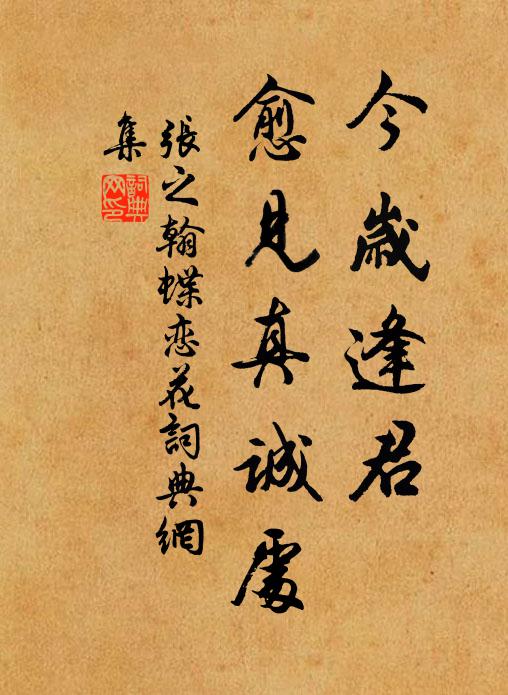 今歲逢君
愈見真誠處
張之翰蝶恋花詞典網
集
詞典
网印